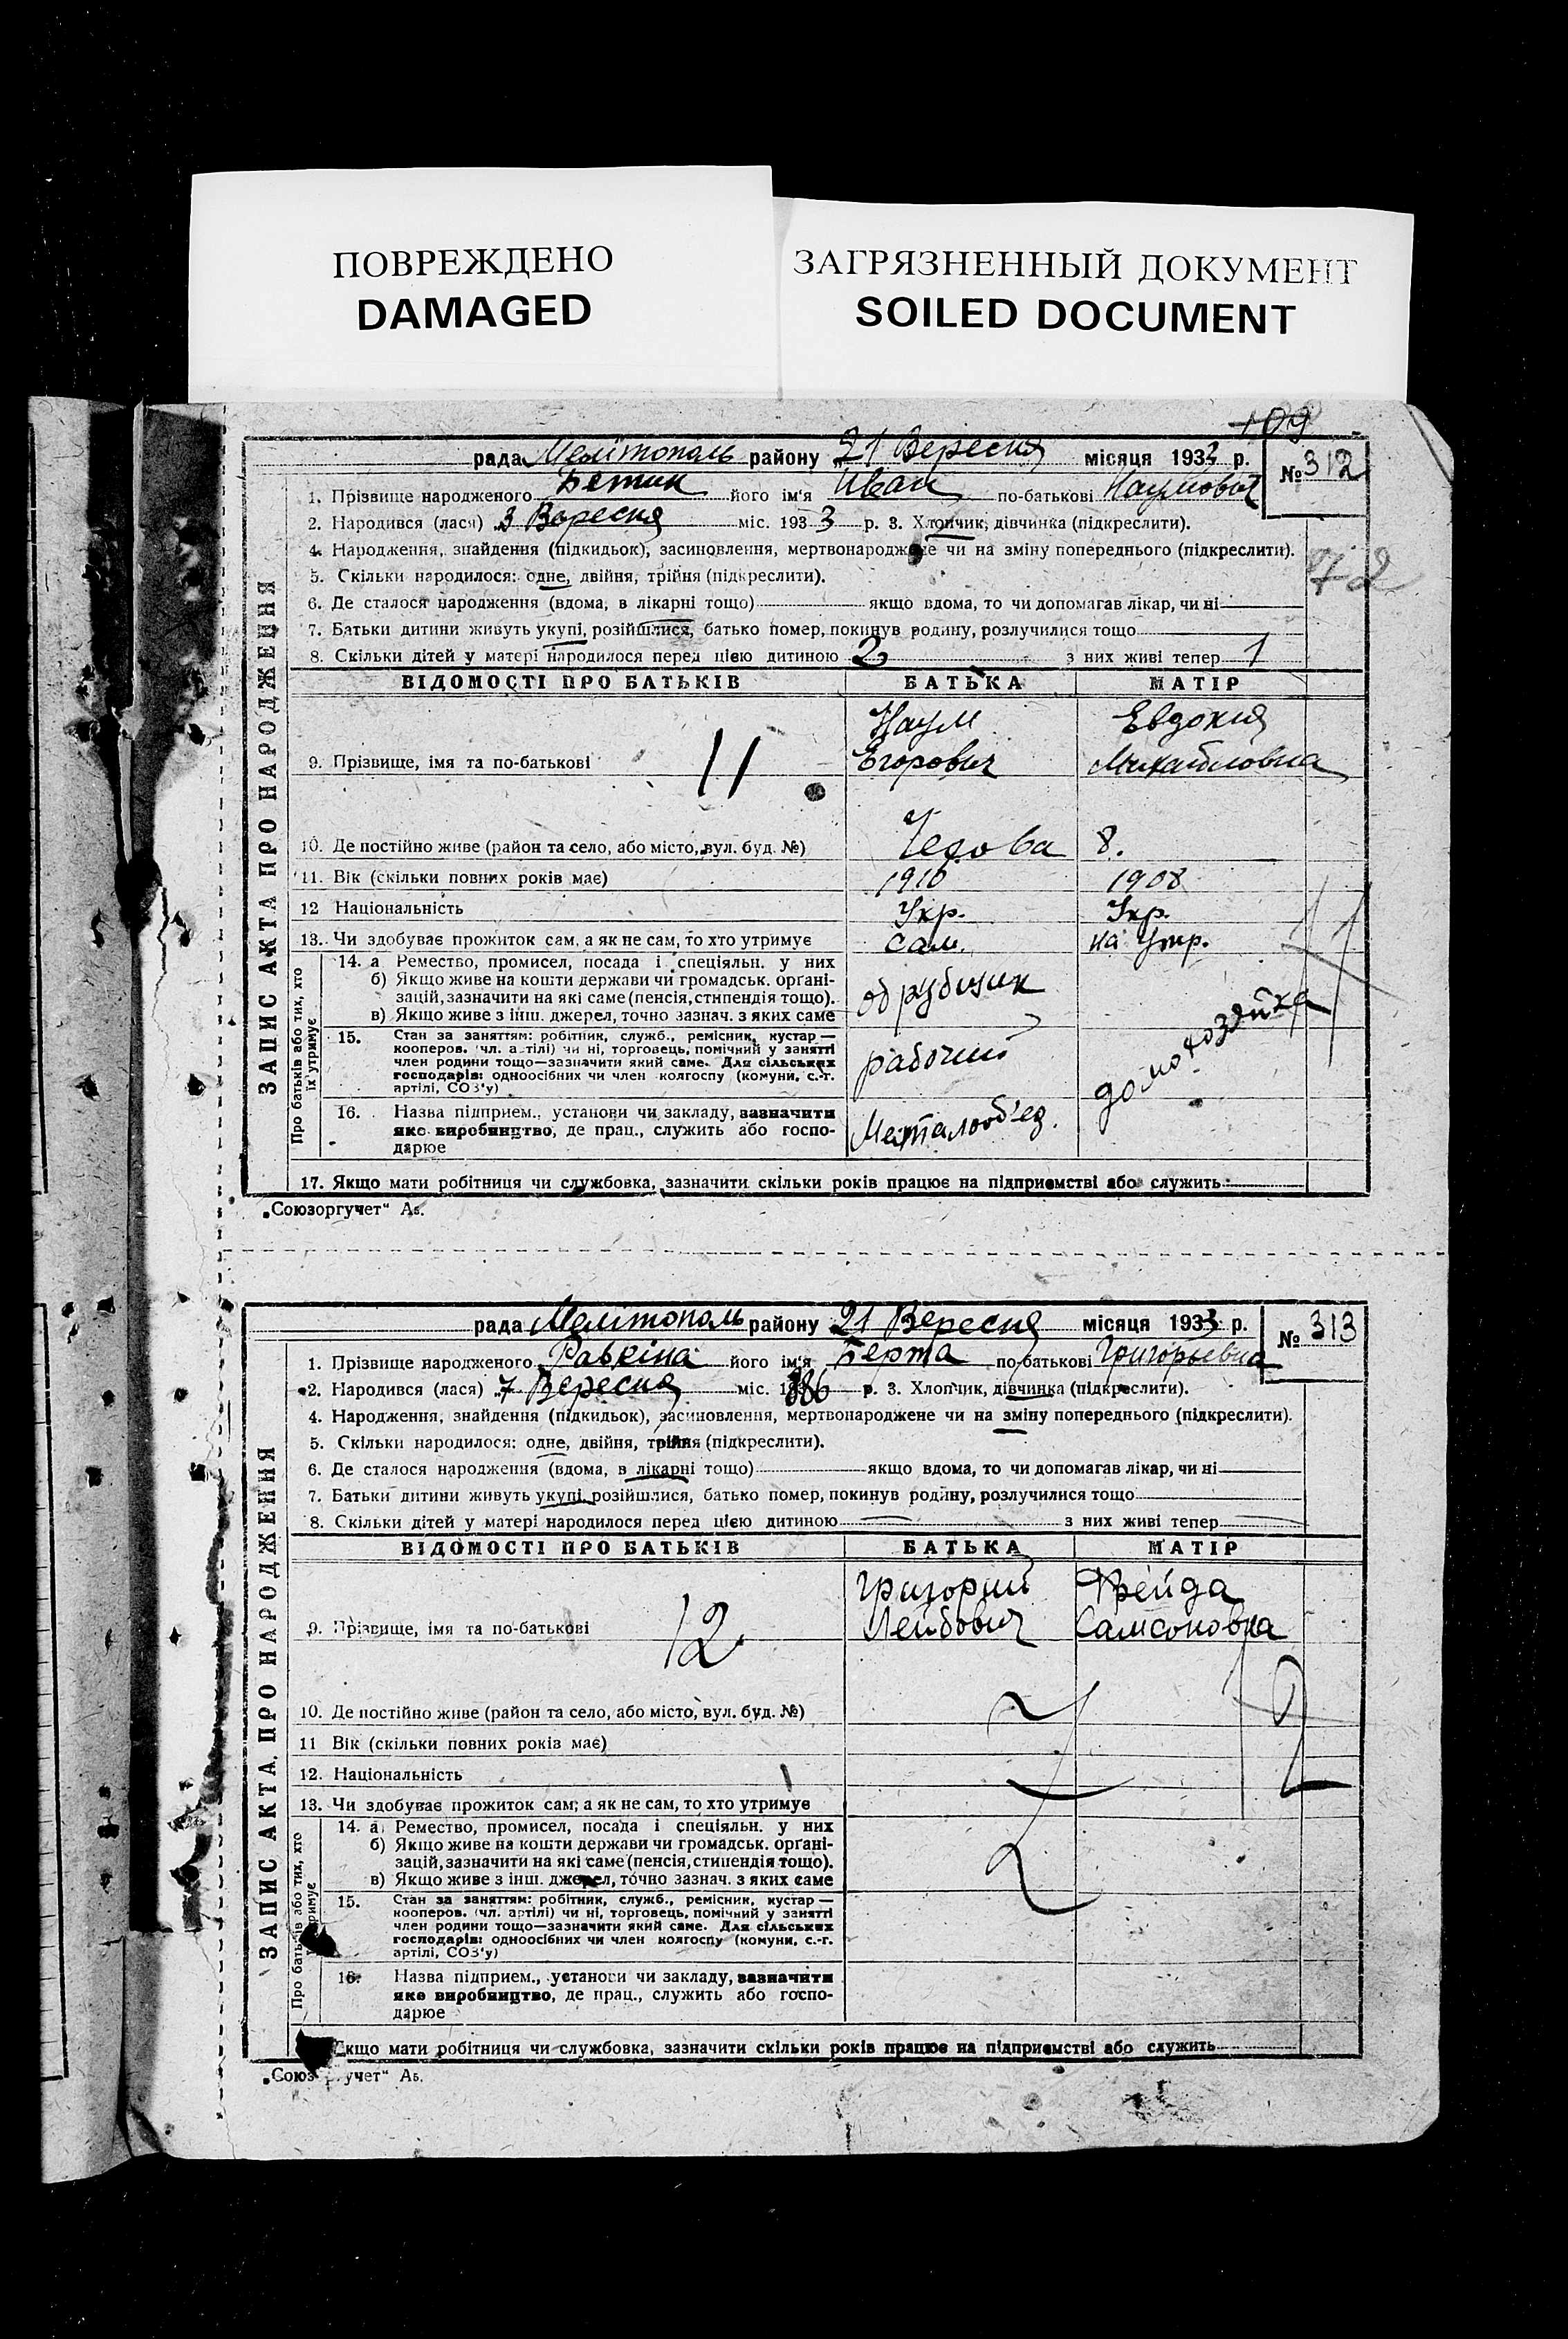 ПОВРЕЖДЕНО
DAMAGED
ЗАГРЯЗНЕННЫЙ ДОКУМЕНТ
SOILED DOCUMENT
109
рада Мелітополь району 21 Вересня місяця 1933 р.
№ 312
1. Прізвище народженого його ім'я Иван по-батькові Наумович
2. Народився (лася) 3 Вересня міс. 1933 р. 3. Хлопчик, дівчинка (підкреслити).
4. Народження, знайдення (підкидьок), засиновлення, мертвонароджене чи на зміну попереднього (підкреслити).
72
5. Скільки народилося: одне, двійня, трійня (підкреслити).
6. Де сталося народження (вдома, в лікарні тощо) якщо вдома, то чи допомагав лікар, чи ні
7. Батьки дитини живуть укупі, розійшлися, батько помер, покинув родину, розлучилися тощо
8. Скільки дітей у матері народилося перед цією дитиною 2 з них живі тепер 1
ЗАПИС АКТА ПРО НАРОДЖЕННЯ
ВІДОМОСТІ ПРО БАТЬКІВ БАТЬКА МАТІР
Наум Евдокия
9. Прізвище, імя та по-батькові 11 Егорович Михайловна
10. Де постійно живе (район та село, або місто, вул. буд. №) 8.
11. Вік (скільки повних років має) 1910 1908
12 Національність Укр. Укр.
13. Чи здобуває прожиток сам, а як не сам, то хто утримує сам. на утр.
11
Про батьків або тих, хто їх утримує
14. а Ремество, промисел, посада і спеціяльн. у них
б) Якщо живе на кошти держави чи громадськ. органі-
зацій, зазначити на які саме (пенсія, стипендія тощо).
в) Якщо живе з інш. джерел, точно зазнач. з яких саме
обрубщик
домохозяйка
15. Стан за заняттям: робітник, служб., ремісник, кустар —
кооперов. (чл. артілі) чи ні, торговець, помічний у занятті
член родини тощо—зазначити який саме. Для сільських
господарів: одноосібних чи член колгоспу (комуни, с.-г.
артілі, СОЗ'у)
рабочий
16. Назва підприєм., установи чи закладу, зазначити
яке виробництво, де прац., служить або госпо-
дарює
Металооб'ед.
17. Якщо мати робітниця чи службовка, зазначити скільки років працює на підприємстві або служить
„Союзоргучет“ Аб.
рада Мелітополь району 21 Вересня місяця 1933 р.
№ 313
1. Прізвище народженого Равкіна його ім'я Берта по-батькові Григорьевна
2. Народився (лася) 7 Вересня міс. р. 3. Хлопчик, дівчинка (підкреслити).
4. Народження, знайдення (підкидьок), засиновлення, мертвонароджене чи на зміну попереднього (підкреслити).
5. Скільки народилося: одне, двійня, трійня (підкреслити).
6. Де сталося народження (вдома, в лікарні тощо) якщо вдома, то чи допомагав лікар, чи ні
7. Батьки дитини живуть укупі, розійшлися, батько помер, покинув родину, розлучилися тощо
8. Скільки дітей у матері народилося перед цією дитиною з них живі тепер
ЗАПИС АКТА ПРО НАРОДЖЕННЯ
ВІДОМОСТІ ПРО БАТЬКІВ БАТЬКА МАТІР
Григорий Фрейда
9. Прізвище, імя та по-батькові 12 Лейбович Самсоновна
12
10. Де постійно живе (район та село, або місто, вул. буд. №)
11 Вік (скільки повних років має)
12. Національність
13. Чи здобуває прожиток сам, а як не сам, то хто утримує
Про батьків або тих, хто утримує
14. а Ремество, промисел, посада і спеціяльн. у них
б) Якщо живе на кошти держави чи громадськ. органі-
зацій, зазначити на які саме (пенсія, стипендія тощо).
в) Якщо живе з інш. джерел, точно зазнач. з яких саме
15. Стан за заняттям: робітник, служб., ремісник, кустар —
кооперов. (чл. артілі) чи ні, торговець, помічний у занятті
член родини тощо—зазначити який саме. Для сільських
господарів: одноосібних чи член колгоспу (комуни, с.-г.
артілі, СОЗ'у)
16. Назва підприєм., установи чи закладу, зазначити
яке виробництво, де прац., служить або госпо-
дарює
Якщо мати робітниця чи службовка, зазначити скільки років працює на підприємстві або служить
„Союзоргучет“ Аб.